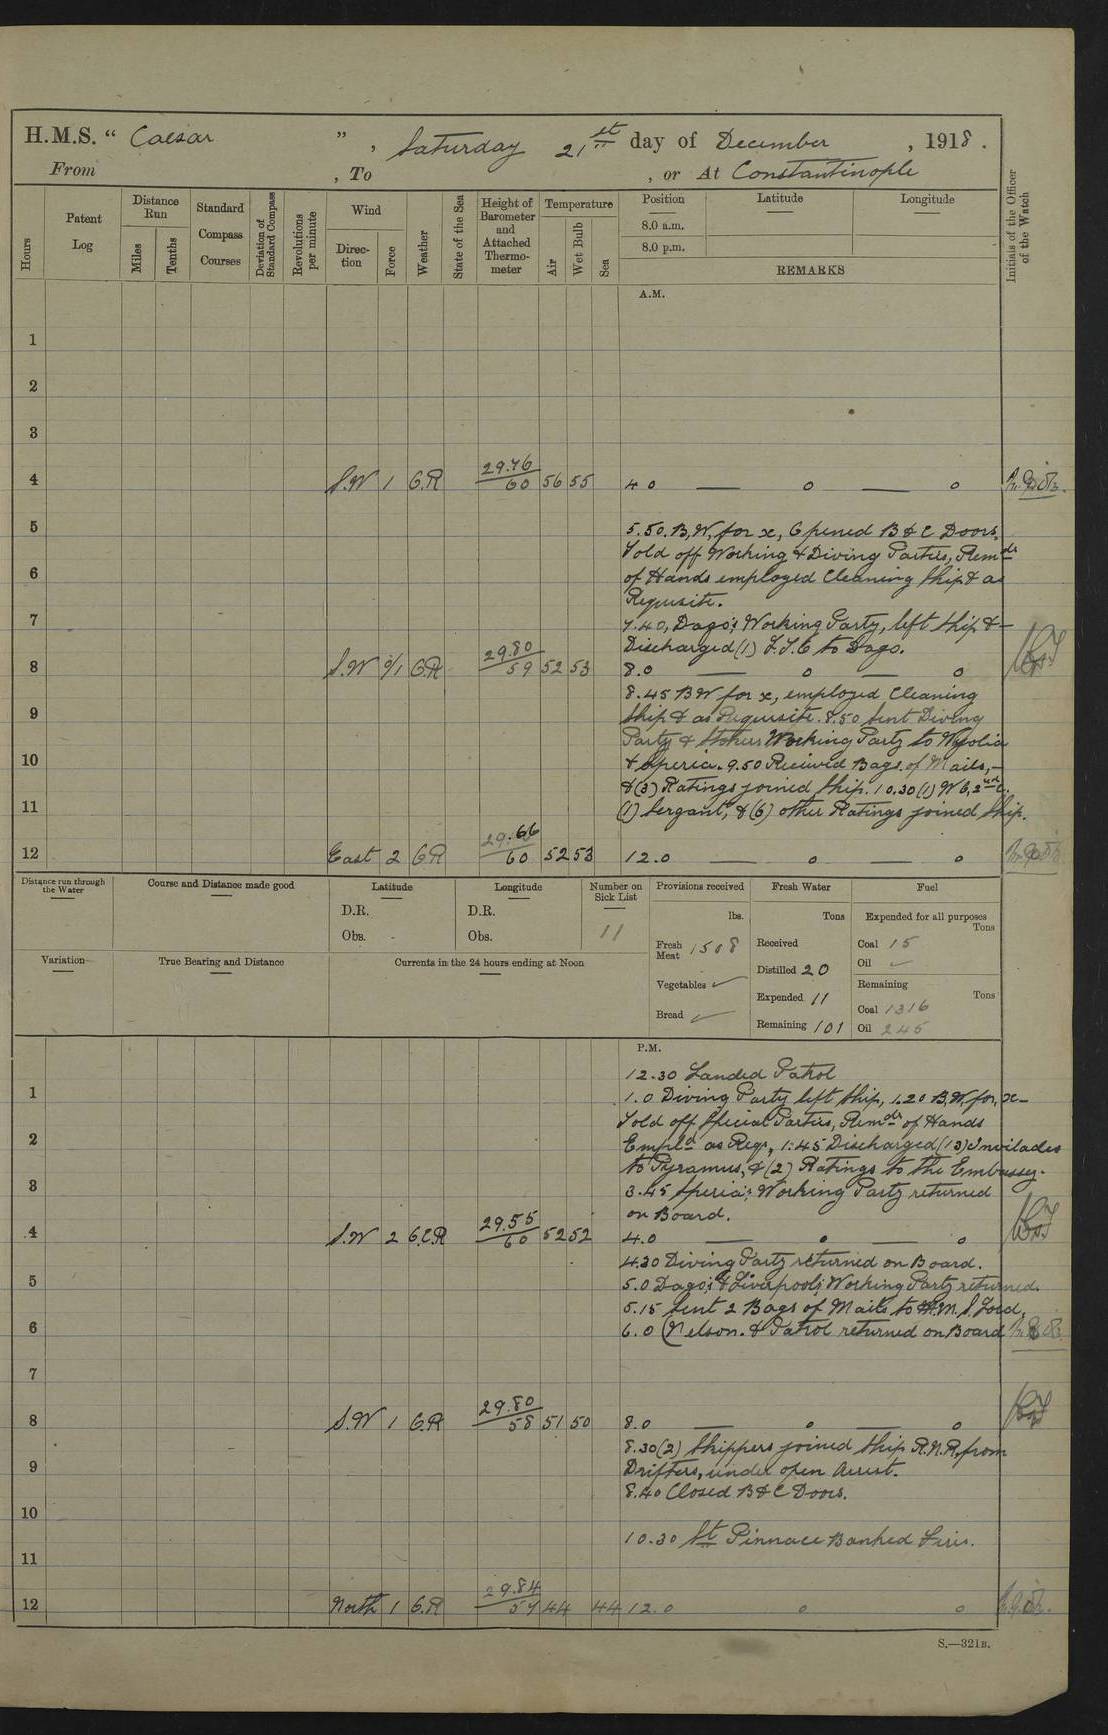 H.M.S. “ Caesar ”, Saturday 21st day of December, 1918.
From , To , or At Constantinople
Hours
Patent Log
Distance Run
Miles
Tenths
Standard Compass Courses
Deviation of Standard Compass
Revolutions per minute
Wind
Direction
Force
Weather
State of the Sea
Height of Barometer and Attached Thermometer
Temperature
Air
Wet Bulb
Sea
Position
8.0 a.m.
8.0 p.m.
Latitude
Longitude
REMARKS
Initials of the Officer of the Watch
A.M.
1
2
3
4 S.W 1 G.R 29.76 60 56 55 4 0 — 0 — 0
5
5.50. B.W. for x, Opened B & C Doors,
Told off Working & Diving Parties, Remdr
6
of Hands employed Cleaning Ship & as
Requisite.
7
7.40, Dago's Working Party, left Ship & —
Discharged (1) to Dago.
8 S.W 0/1 G.R 29.80 59 52 53 8.0 — 0 — 0
8.45 B.W for x, employed Cleaning
9
Ship & as Requisite. 8.50 Sent Diving
Party & Stokers Working Party to
10
& Speria. 9.50 Received Bags of Mails, —
& (3) Ratings joined Ship. 10.30 (1)
11
(1) Sergant, & (6) other Ratings joined Ship.
12 East 2 G.R 29.66 60 52 53 12.0 — 0 — 0
Distance run through the Water
Course and Distance made good
Latitude
D.R.
Obs.
Longitude
D.R.
Obs.
Number on Sick List
11
Provisions received
lbs.
Fresh Meat 1508
Vegetables ✓
Bread ✓
Fresh Water
Tons
Received
Distilled 20
Expended 11
Remaining 101
Fuel
Expended for all purposes
Tons
Coal 15
Oil ✓
Remaining
Tons
Coal 1316
Oil 245
Variation
True Bearing and Distance
Currents in the 24 hours ending at Noon
P.M.
12.30 Landed Patrol
1
1.0 Diving Party left Ship, 1.20 B.W. for x —
Told off Special Parties, Remdr of Hands
2
Empld as Reqr, 1.45 Discharged (13) Invilades
to Pyramus, & (2) Ratings to the Embassy.
3
3.45 Speria's Working Party returned
on Board.
4 S.W 2 G.C.R 29.55 60 52 52 4.0 — 0 — 0
4.30 Diving Party returned on Board.
5
5.0 Dago's & Liverpool's Working Party returned.
5.15 Sent 2 Bags of Mails to H.M.S. Lord
6
6.0 (Nelson. & Patrol returned on Board
7
8 S.W 1 G.R 29.80 58 51 50 8.0 — 0 — 0
8.30 (2) Skippers joined Ship R.N.R, from
9
Drifters, under open Arrest.
8.40 Closed B & C Doors.
10
10.30 St Pinnace Banked Fires.
11
12 North 1 G.R 29.84 57 44 44 12.0 0 0
S.—321B.